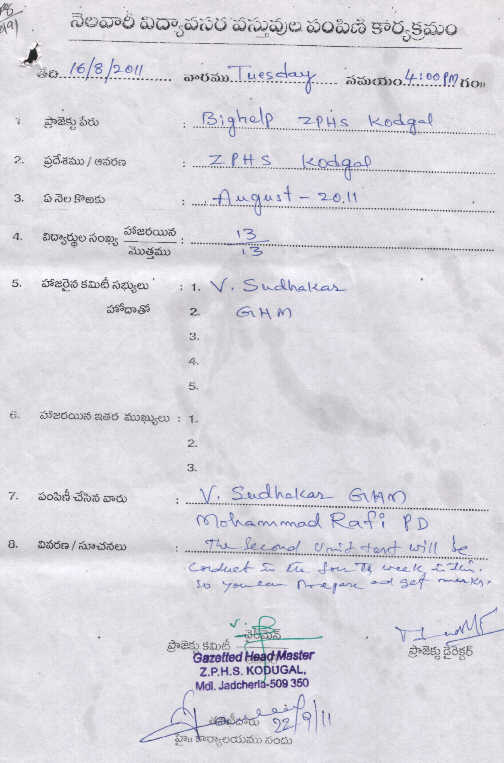 నెలవారీ విద్యావసర వస్తువుల పంపిణీ కార్యక్రమం
తేది 16/8/2011 వారము Tuesday సమయం 4:00 PM గం॥
1. ప్రాజెక్టు పేరు : Bighelp ZPHS Kodgal
2. ప్రదేశము / ఆవరణ : ZPHS Kodgal
3. ఏ నెల కొఱకు : August - 2011
4. విద్యార్థుల సంఖ్య హాజరయిన / మొత్తము : 13 / 13
5. హాజరైన కమిటీ సభ్యులు : 1. V. Sudhakar
హోదాతో 2. GHM
3.
4.
5.
6. హాజరయిన ఇతర ముఖ్యులు : 1.
2.
3.
7. పంపిణీ చేసిన వారు : V. Sudhakar GHM
Mohammad Rafi PD
8. వివరణ / సూచనలు : The Second Unit test will be
conduct in the fourth week
So you can prepare and get marks.
ప్రాజెక్టు కమిటీ చైర్మన్
ప్రాజెక్టు డైరెక్టర్
Gazetted Head Master
Z.P.H.S. KODUGAL,
Mdl. Jadcherla-509 350
22/9/11
కార్యాలయము నందు